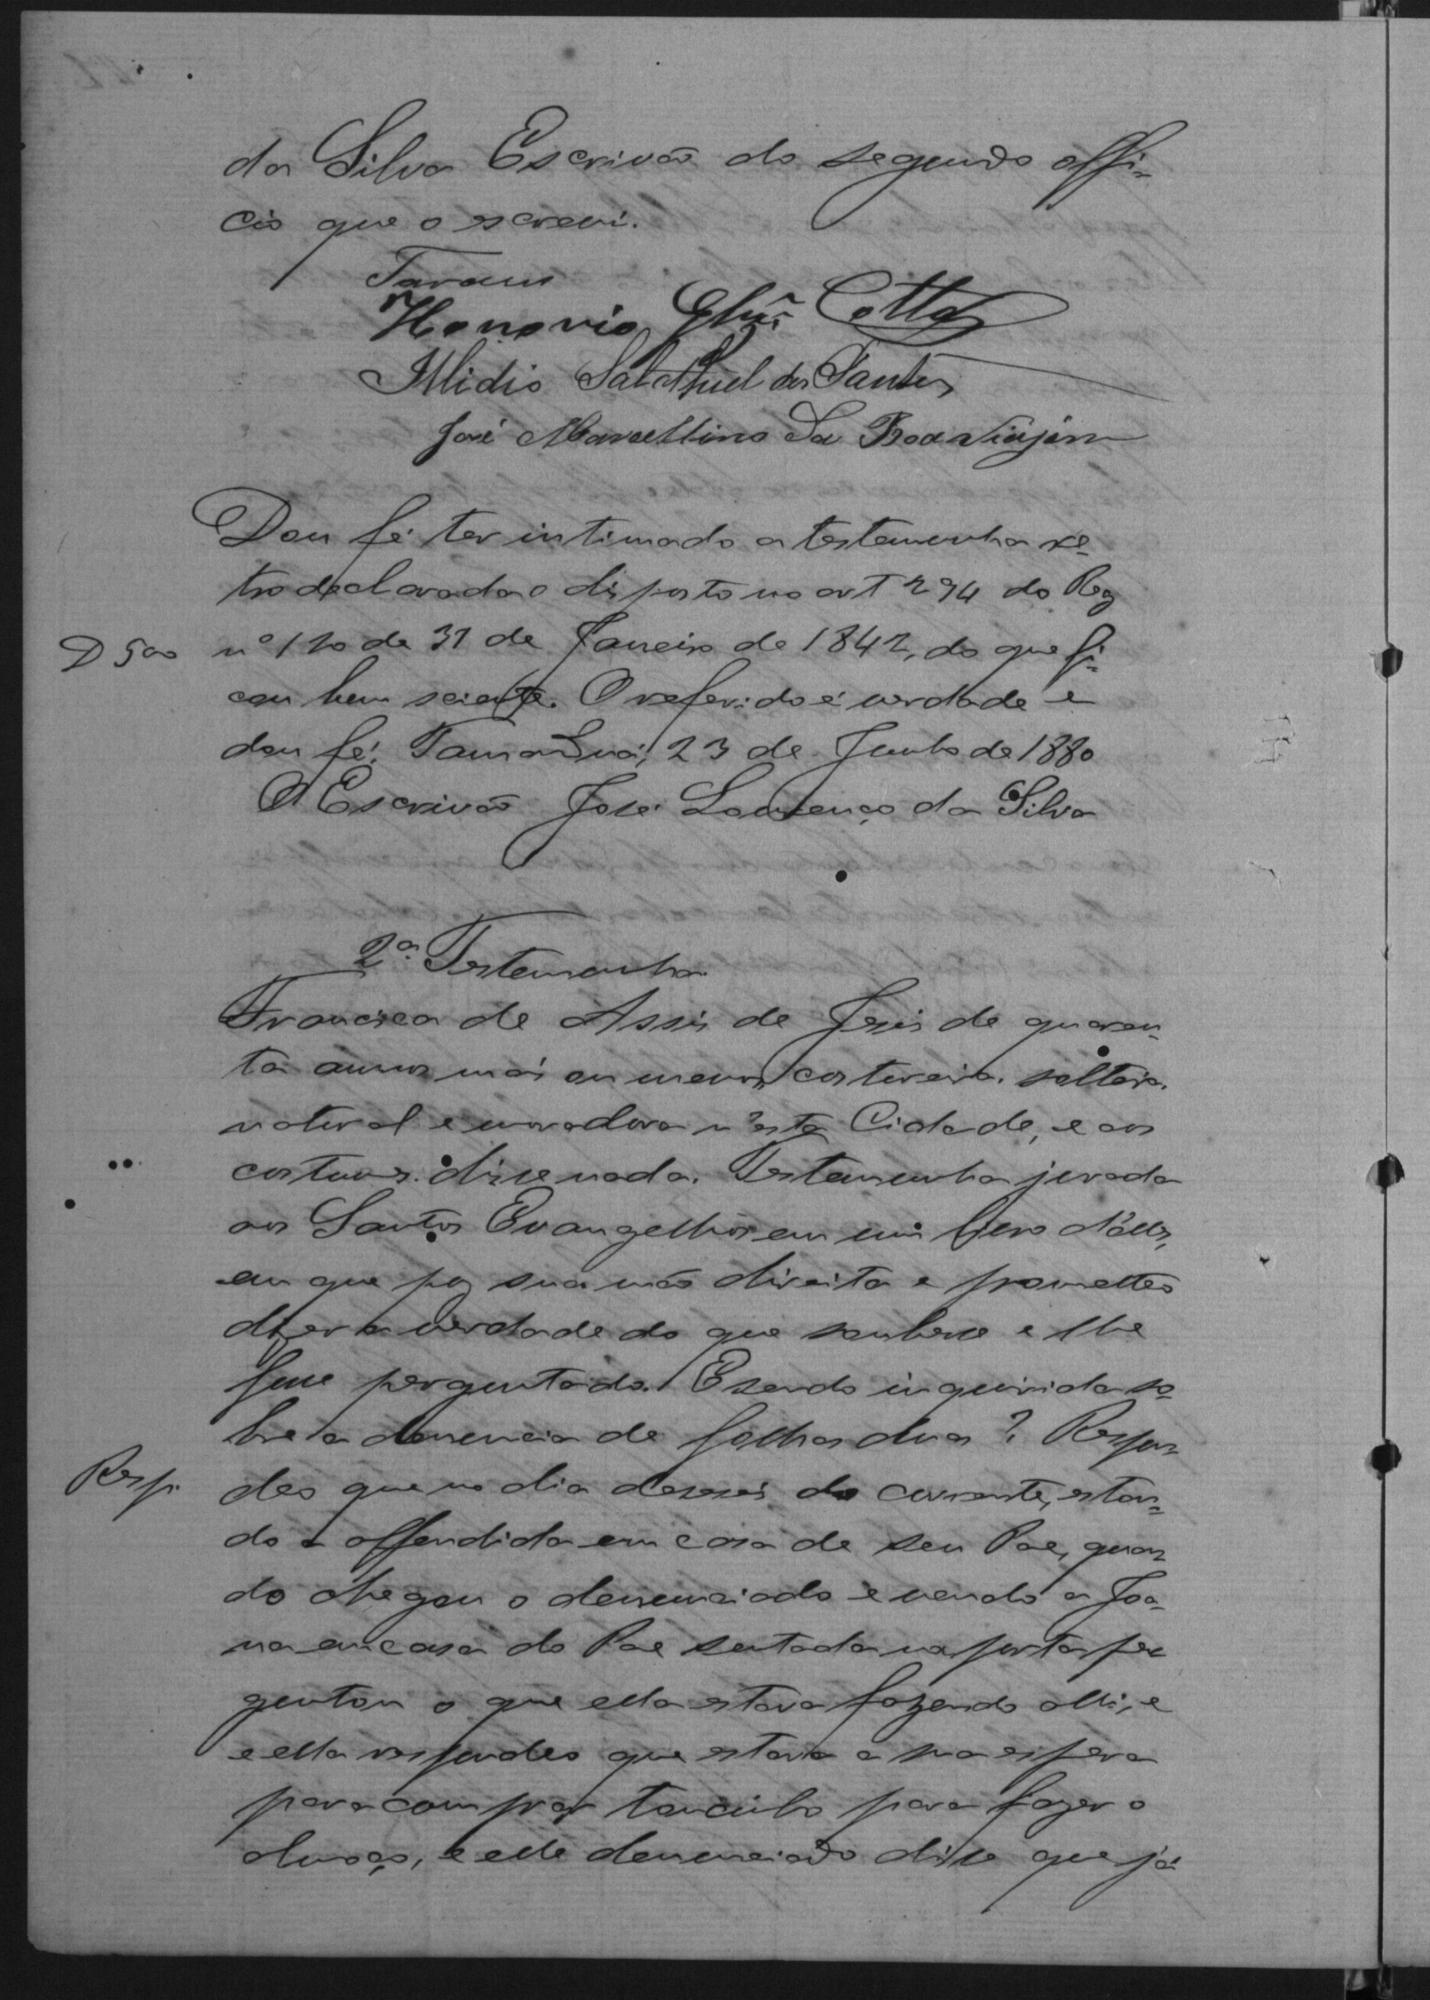 da Silva Escrivão do segundo offi-
cio que o escrevi.
Tavares
Honorio Cotta
Illidio dos Santos
José Marcellino da Boaviajem
Dou fé ter intimado a testemunha re-
tro declarada o disposto no art 294 do Reg
nº 120 de 31 de Janeiro de 1842, do que fi-
D 500
cou bem sciente. O referido é verdade e
dou fé. Tamanduá, 23 de Junho de 1880
O Escrivão José Lourenço da Silva
2ª Testemunha
Francisca de Assis de Jesus de quaren-
ta annos mais ou menos, costureira, solteira
natural e moradora n'esta Cidade, e aos
costumes disse nada. Testemunha jurada
aos Santos Evangelhos em um livro d'elles,
em que poz sua mão direita e prometteo
dizer a verdade do que soubesse e lhe
fosse perguntado. E sendo inquirida so-
bre a denuncia de folhas duas? Respon-
Resp.
deo que no dia deseseis do corrente, estan-
do a offendida em casa de seu Pae, quan-
do chegou o denunciado e vendo a Joa-
na em casa do Pae sentada na porta per
guntou o que ella estava fazendo alli, e
e ella respondeo que estava a sua espera
para comprar toucinho para fazer o
almoço, e elle denunciado disse que já